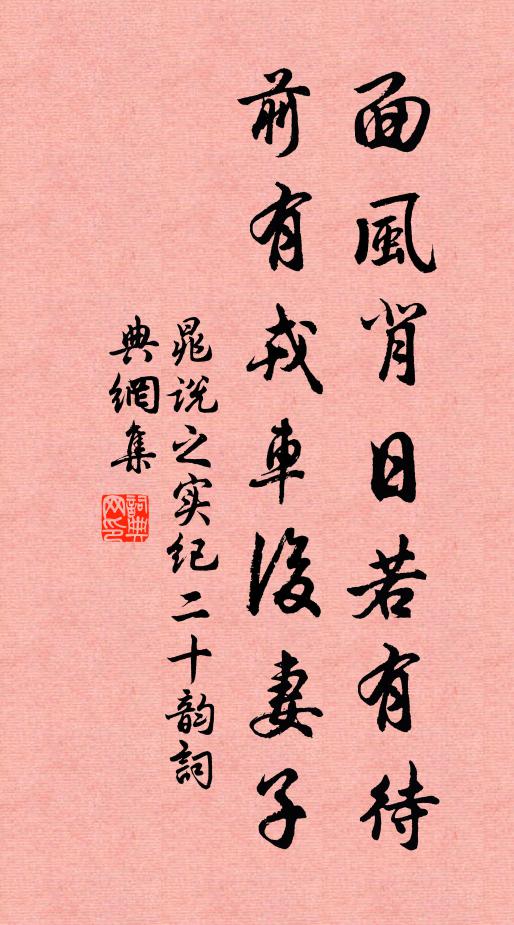 面風背日若有待
前有戎車後妻子
晁説之实纪二十韵詞
典網集
詞典网印